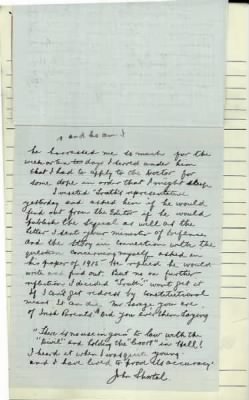 he harassed me so much for the
week or ten days I lived under him
that I had to apply to the Doctor for
some dope in order that I might sleep.
I wrested Truth's representative
yesterday and asked him if he would
find out from the Editor if he would
publish the appeal as well as the
letter I sent your minister of Defense
and the story in connection with the
question concerning myself asked in
his paper of 1915. He replied he would
write and find out. But on further
reflection I decided "Truth" won't get it
If I can't get redress by Constitutional
means it can die.
of Irish Parents and you know their saying
"There is no use in goin' to law with the
"Divil" and holding the "Coort" in Hell!
I heard it when I was quite young
and I have lived to prove its accuracy.
John